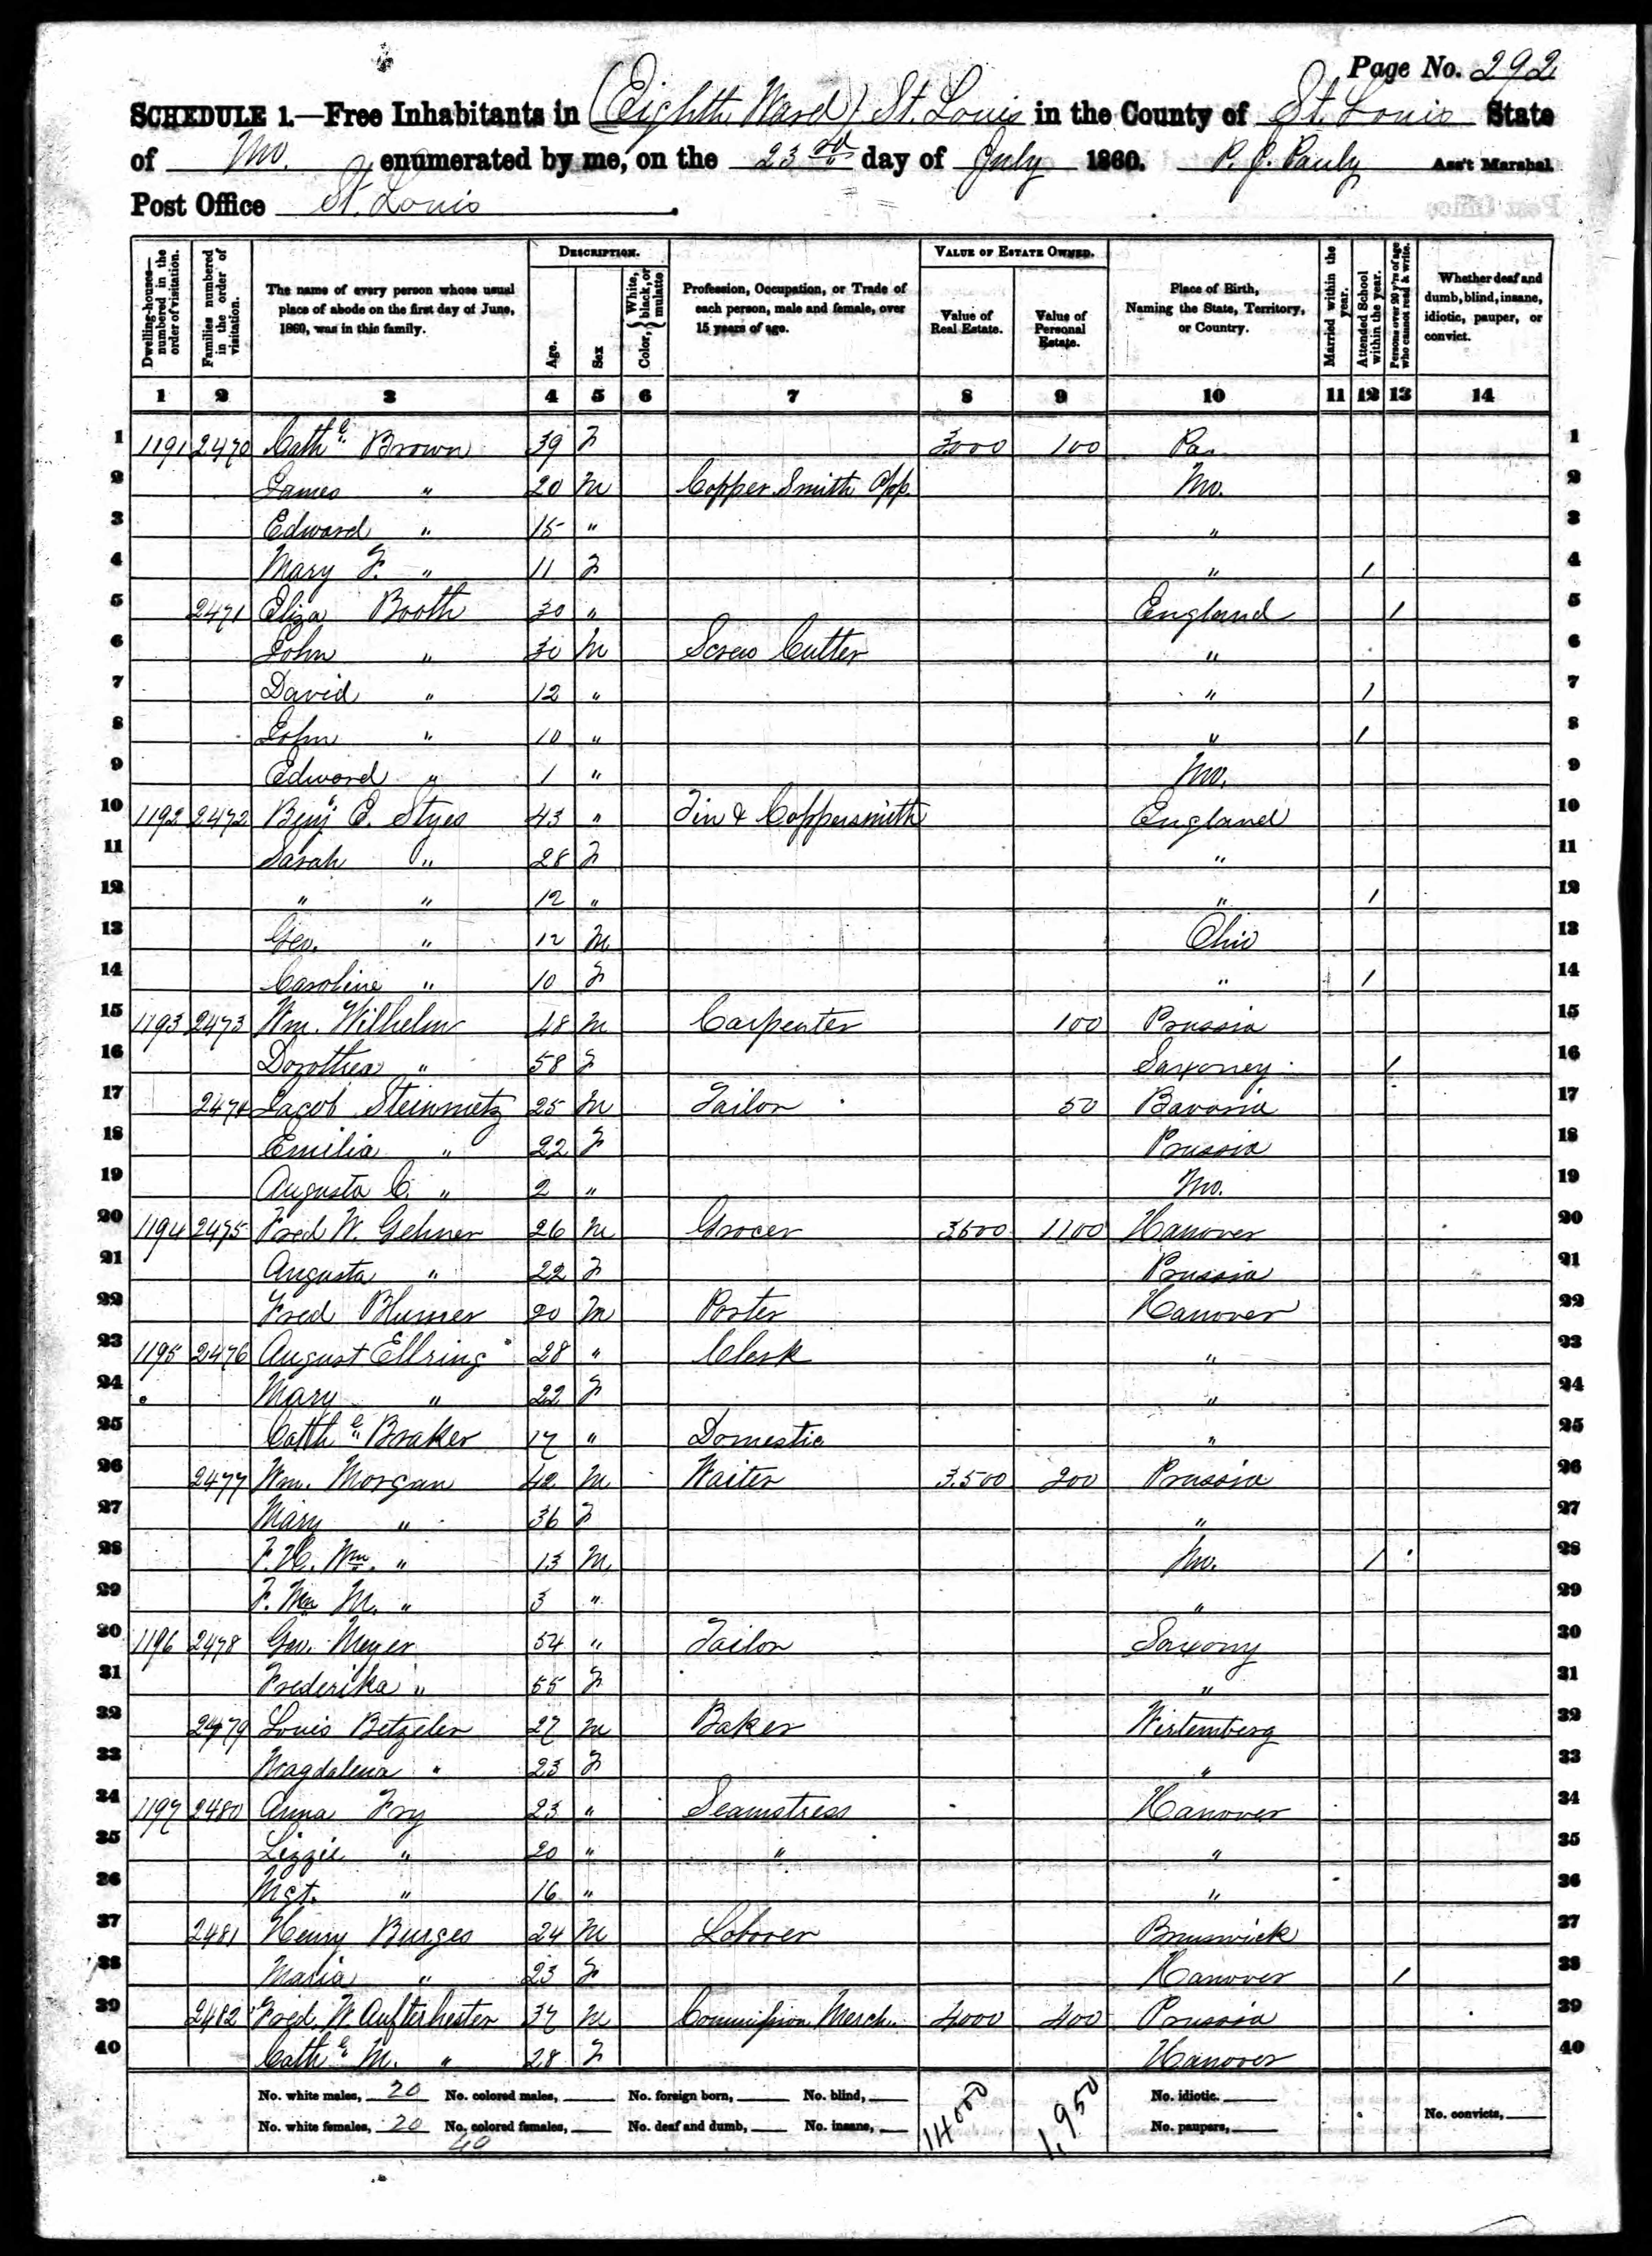 Page No. 292
SCHEDULE 1.—Free Inhabitants in (Eighth Ward) St. Louis in the County of St. Louis State
of Mo. enumerated by me, on the 23rd day of July 1860. P. J. Pauly Ass't Marshal
Post Office St. Louis
Dwelling-houses—numbered in the order of visitation.
Families numbered in the order of visitation.
The name of every person whose usual place of abode on the first day of June, 1860, was in this family.
DESCRIPTION.
Age.
Sex
Color, { White, black, or mulatto
Profession, Occupation, or Trade of each person, male and female, over 15 years of age.
VALUE OF ESTATE OWNED.
Value of Real Estate.
Value of Personal Estate.
Place of Birth, Naming the State, Territory, or Country.
Married within the year.
Attended School within the year.
Persons over 20 y'rs of age who cannot read & write.
Whether deaf and dumb, blind, insane, idiotic, pauper, or convict.
1 2 3 4 5 6 7 8 9 10 11 12 13 14
1 1191 2470 Cathe. Brown 39 F 3000 100 Pa. 1
2 James " 20 M Copper Smith App. Mo. 2
3 Edward " 15 " " 3
4 Mary F. " 11 F " / 4
5 2471 Eliza Booth 30 " England / 5
6 John " 30 M Screw Cutter " 6
7 David " 12 " " / 7
8 John " 10 " " / 8
9 Edward " 1 " Mo. 9
10 1192 2472 Benj. C. Styes 43 " Tin & Coppersmith England 10
11 Sarah " 28 F " 11
12 " " 12 " " / 12
13 Geo. " 12 M Ohio 13
14 Caroline " 10 F " / 14
15 1193 2473 Wm. Wilhelm 48 M Carpenter 100 Prussia 15
16 Dorothea " 58 F Saxoney / 16
17 2474 Jacob Steinmetz 25 M Tailor 50 Bavaria 17
18 Emilia " 22 F Prussia 18
19 Augusta C. " 2 " Mo. 19
20 1194 2475 Fred W. Gehner 26 M Grocer 3500 1100 Hanover 20
21 Augusta " 22 F Prussia 21
22 Fred Blumer 20 M Porter Hanover 22
23 1195 2476 August Ellring 28 " Clerk " 23
24 Mary " 22 F " 24
25 Cathe. Braker 17 " Domestic " 25
26 2477 Wm. Morgan 42 M Waiter 3.500 200 Prussia 26
27 Mary " 36 F " 27
28 F. H. Wm. " 13 M Mo. / 28
29 F. Wm M. " 3 " " 29
30 1196 2478 Geo. Meyer 54 " Tailor Saxony 30
31 Frederika " 55 F " 31
32 2479 Louis Betzeler 27 M Baker Wirtemberg 32
33 Magdalena " 23 F " 33
34 1197 2480 Anna Fry 23 " Seamstress Hanover 34
35 Lizzie " 20 " " " 35
36 Mgt. " 16 " " 36
37 2481 Henry Burges 24 M Laborer Brunswick 37
38 Maria " 23 F Hanover / 38
39 2482 Fred. W. Aufterhester 37 M Commission Merch. 4000 400 Prussia 39
40 Cathe. M. " 28 F Hanover 40
No. white males, 20 No. colored males, No. foreign born, No. blind, 14000 1,950 No. idiotic.
No. white females, 20 No. colored females, No. deaf and dumb, No. insane, No. paupers, No. convicts,
40